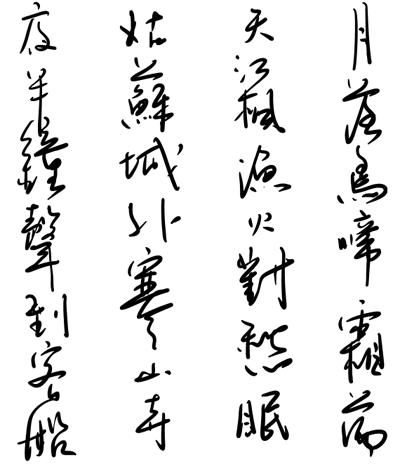 月落烏啼霜滿
天江楓漁火對愁眠
姑蘇城外寒山寺
夜半鐘聲到客船